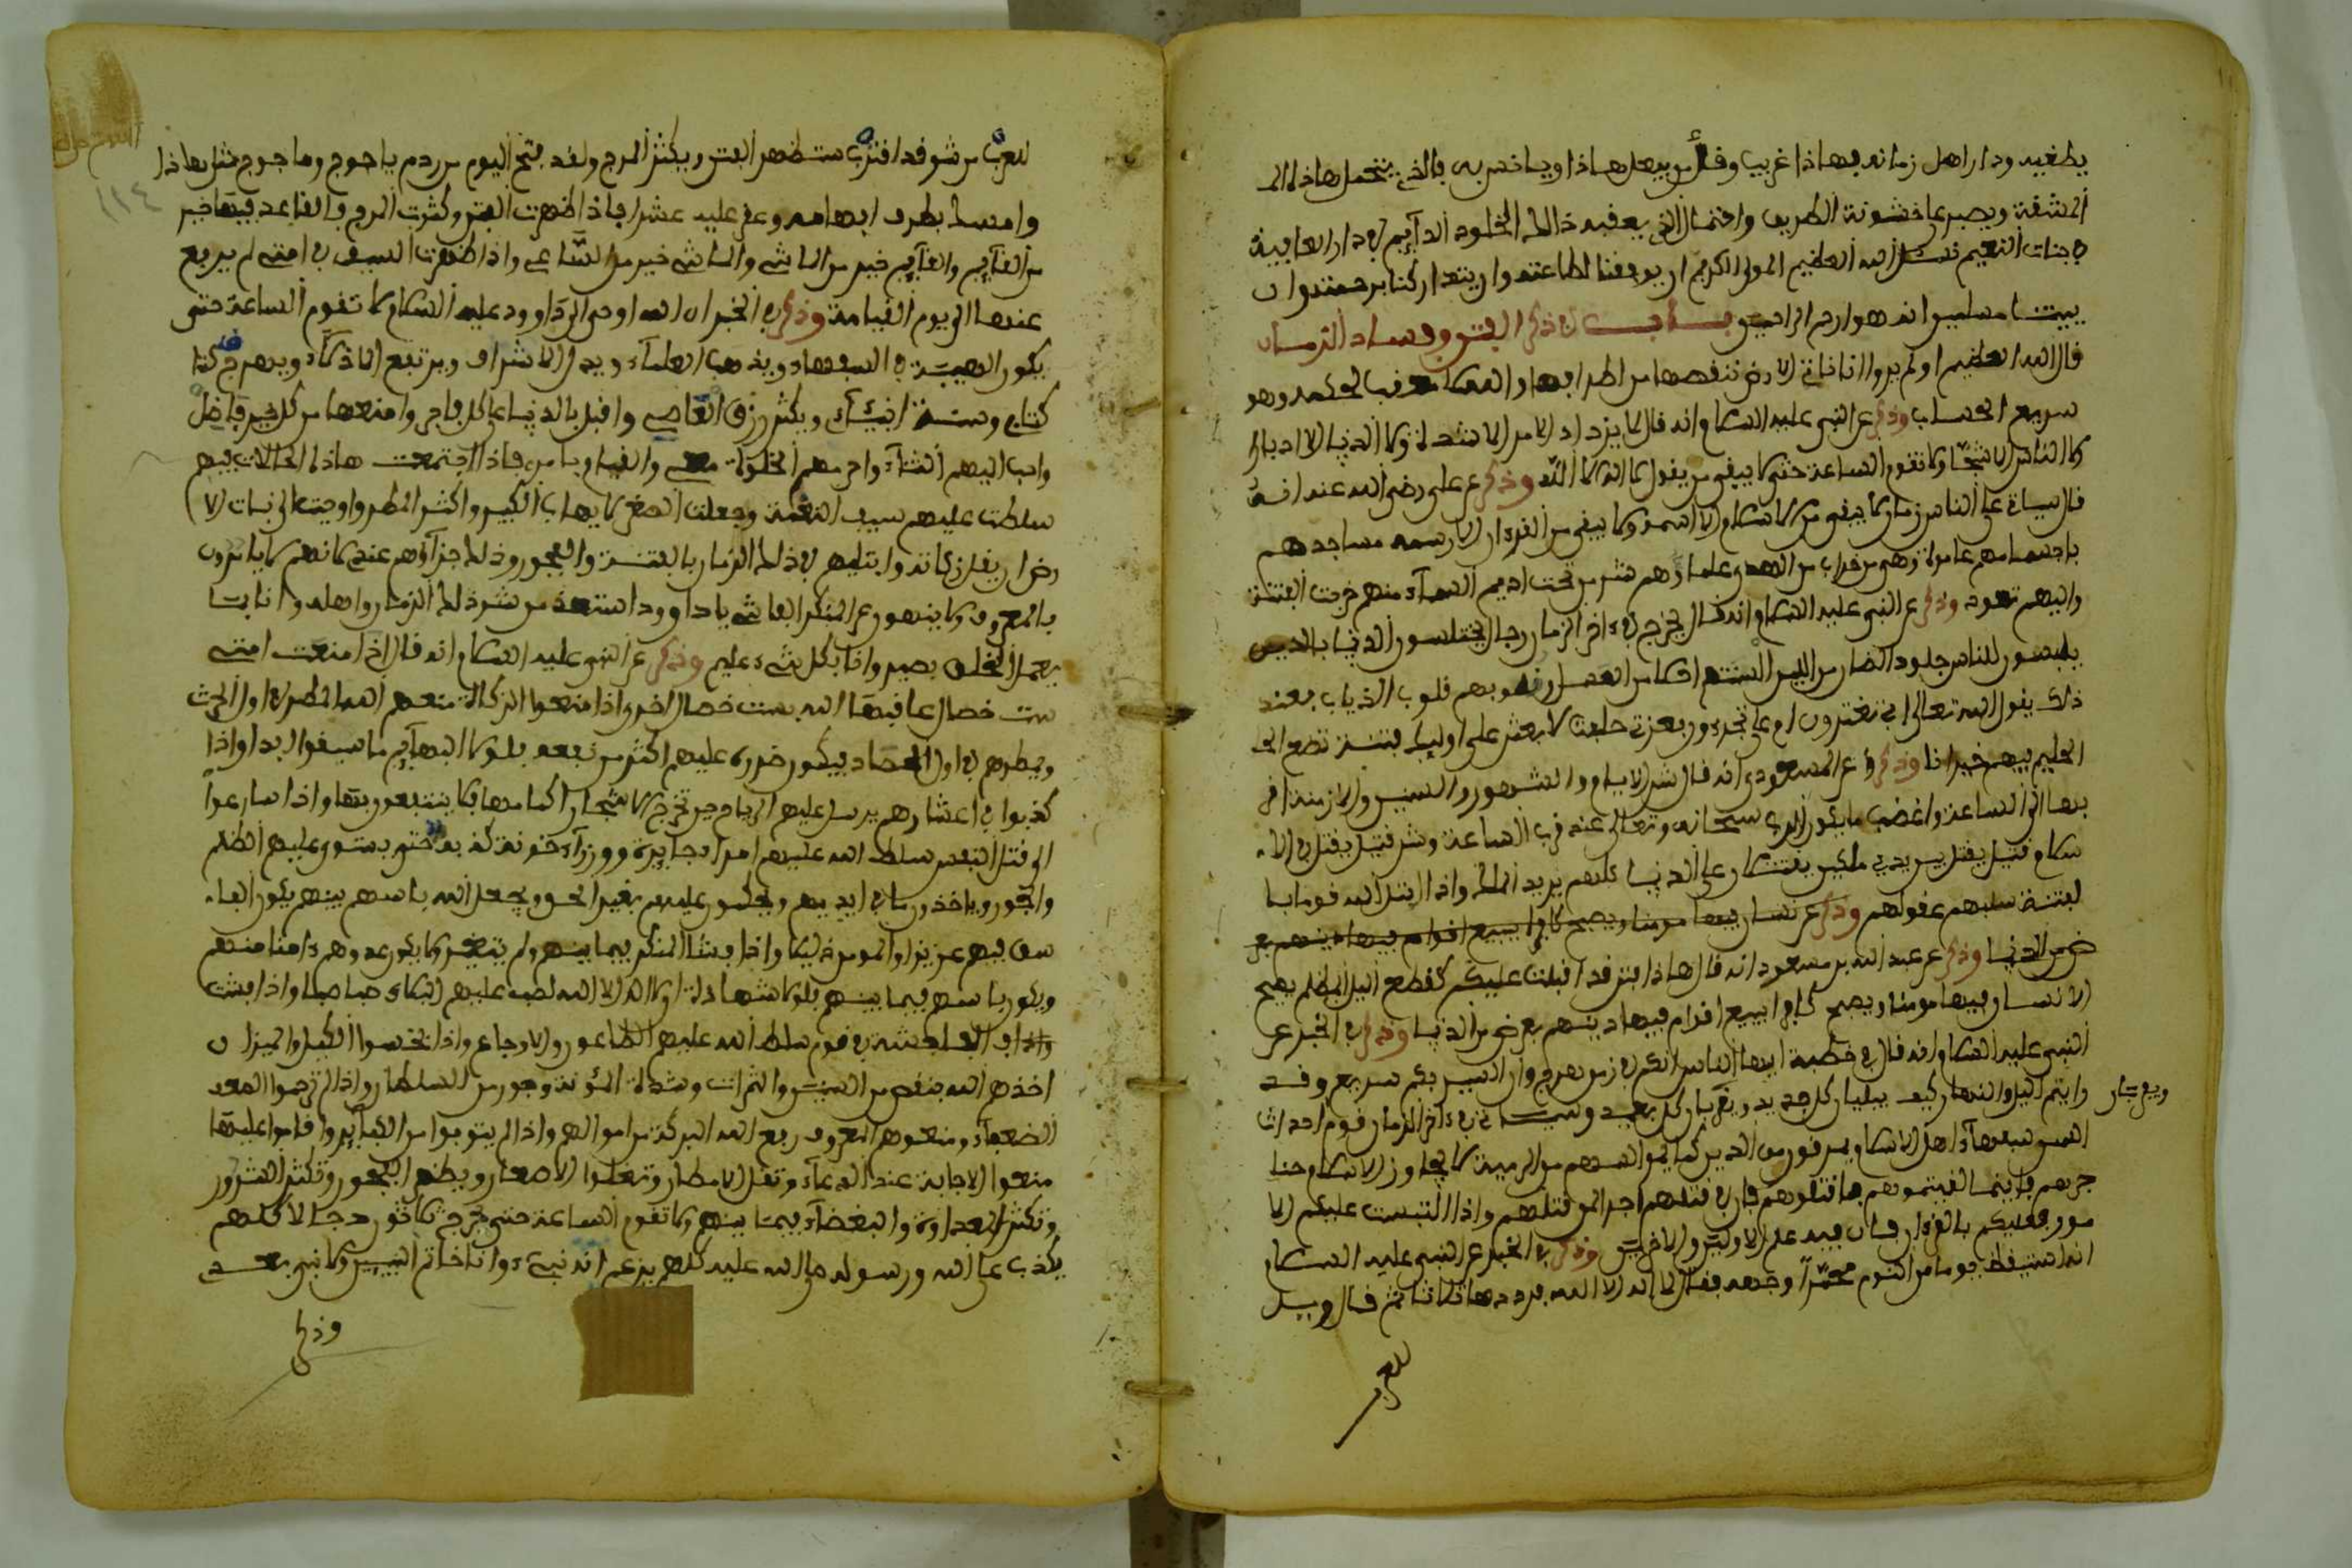 يطغيه ودار اهل زمانه فهاذا غريب وقل من يفعل هاذا ويا خسر به فالذي يتحمل هاذا الا
المشقة ويصبر على خشونة الطريق واختمال الذي يعقبه ذالك الخلود الدآيم في دار العافية
في جنات النعيم نسئل الله العظيم المولى الكريم ان يوفقنا لطاعته وان يتداركنا برحمته وان
يميتنا مسلمين انه هو ارحم الراحمين باب في ذكر الفتن وفساد الزمان
قال الله العظيم اولم يروا انا ناتي الارض ننقصها من اطرافها والله يحكم لا معقب لحكمه وهو
سريع الحساب وذكر عن النبي عليه السلام انه قال لا يزداد الامر الا شدة ولا الدنيا الا ادبارا
ولا الناس الا شحا ولا تقوم الساعة حتى لا يبقى من يقول لا اله الا الله وذكر عن علي رضي الله عنه انه
قال سياتي على الناس زمان لا يبقى من الاسلام الا اسمه ولا يبقى من القرءان الا رسمه مساجدهم
باجسامهم عامرة وهي من خراب من الهدى علماؤهم شر من تحت اديم السمآء منهم خرجت الفتنة
واليهم تعود وذكر عن النبي عليه السلام انه قال يخرج في ءاخر الزمان رجال يختلسون الدنيا بالدين
يلبسون للناس جلود الضان من اللين السنتهم احلا من العسل وقلوبهم قلوب الذياب فعند
ذلك يقول الله تعالى ابي تغترون ام علي تجترءون فبعزتي حلفت لابعثن على اوليك فتنة تدع الحـ
الحليم فيهم حيرانا وذكر عن المسعودي انه قال شر الايام والشهور والسنين والازمنة اقر
بها الى الساعة واغضب ما يكون الرب سبحانه وتعالى عند قرب الساعة وشر قتيل يقتل في الا
سلام قتيل يقتل بين يدي ملكين يقتتلان على الدنيا كلهم يريد الملك واذا ابتلى الله قوما با
لفتنة سلبهم عقولهم
ض من الدنيا وذكر عن عبد الله بن مسعود انه قال هاذا فتن قد اقبلت عليكم كقطع اليل المظلم يصبح
الانسان فيها مومنا ويصبح كافرا يبيع اقوام فيها دينهم بعرض من الدنيا وذكر في الخبر عن
النبي عليه السلام انه قال في خطبة ايها الناس انكم في زمن هرج وان السير بكم سريع وقد
رايتم اليل والنهار كيف يبليان كل جديد ويقربان كل بعيد وسياتي في ءاخر الزمان قوم احداث
ويعجلان
السن سفهآء اهل الاسلام يمرقون من الدين كما يمر السهم من الرمية لا يجاوز الاسلام حنا
جرهم فاينما لقيتموهم فاقتلوهم فان في قتلهم اجرا لمن قتلهم واذا التبست عليكم الا
مور فعليكم بالقرءان فان فيه علم الاولين والاخرين وذكر في الخبر عن النبي عليه السلام
انه استيقظ يوما من النوم محمرا وجهه فقال لا اله الا الله فرددها ثلاثا ثم قال ويل
للعر
للعرب من شر قد اقترب ستظهر الفتن ويكثر الهرج ولقد فتح اليوم من ردم ياجوج وماجوج مثل هاذا
وامسك بطرف ابهامه وعقد عليه عشرا فاذا ظهرت الفتن وكثرت الهرج فالقاعد فيها خير
من القآيم والقآيم خير من الماشي والماشي خير من الساعي واذا ظهرت السيف في امتي لم يرفع
عنها الى يوم القيامة وذكر في الخبر ان الله اوحى الى داوود عليه السلام لا تقوم الساعة حتى
تكون الهيبة في السفهاء ويذهب العلمآء ويذل الاشراف ويرتفع الانذكآء ويهجر
كتابي وسنة انبيآئي ويكثر رزق العاصي واقبل بالدنيا على كل فاجر وامنعها من كل خير فاضل
واحب اليهم الشتآء واحرمهم الخلوة معي والقيام بامري فاذا اجتمعت هاذه الحالات فيهم
سلطت عليهم سيف النقمة وجعلت الصغير لا يهاب الكبير واكثر المطر واوحيت الى نبات الا
رض ان يقل زكاته وابتليهم في ذلك الزمان بالفتنة والفجور وذلك جزآؤهم عندي لانهم لا يامرون
بالمعروف ولا ينهون عن المنكر الفاشي يا داوود استعذ من شر ذلك الزمان واهله وانا بما
يعمل الخلق بصير وانا بكل شيء عليم وذكر عن النبي عليه السلام انه قال اذا منعت امتي
ست خصال عاقبها الله بست خصال اخرى اذا منعوا الزكاة منعهم الله المطر في اول الحرث
ويمطرهم في اول الحصاد فيكون ضرره عليهم اكثر من نفعه فلولا البهآيم ما سقوا ابدا واذا
كذبوا في اعشارهم يرسل عليهم الرياح حين تخرج الاشجار اكمامها فلا ينتفعون بها واذا سارعوا
الى قتل النفس سلط الله عليهم امرآء جابرة ووزرآء خونة حتى يستوي عليهم الظلم
والجور وياخذون ما في ايديهم ويحكمون عليهم بغير الحق ويجعل الله باسهم بينهم يكون الفا
سق فيهم عزيزا والمومن ذليلا واذا فشا المنكر فيما بينهم ولم يتغير ولا يكون عدوهم ءامنا منهم
ويكون باسهم فيما بينهم فلولا شهادة ان لا اله الا الله لصب عليهم البلاء صبا صبا واذا فشت
الفاحشة في قوم سلط الله عليهم الطاعون والاوجاع واذا بخسوا الكيل والميزان
اخذهم الله بنقص من السنين والثمرات وشدة المؤنة وجور من السلطان واذا لم يرحموا
الضعفآء ومنعوهم المعروف رفع الله البركة من اموالهم واذا لم يتوبوا من الكبآير واقاموا عليها
منعوا الاجابة عند الدعآء وتقل الامطار وتغلوا الاسعار ويظهر الفجور وتكثر الشرور
وتكثر العداوة والبغضآء فيما بينهم ولا تقوم الساعة حتى يخرج ثلاثون دجالا كلهم
يكذب على الله ورسوله صلى الله عليه كلهم يزعم انه نبيء وانا خاتم النبيين ولا نبي بعدي
وذكر
١١٤